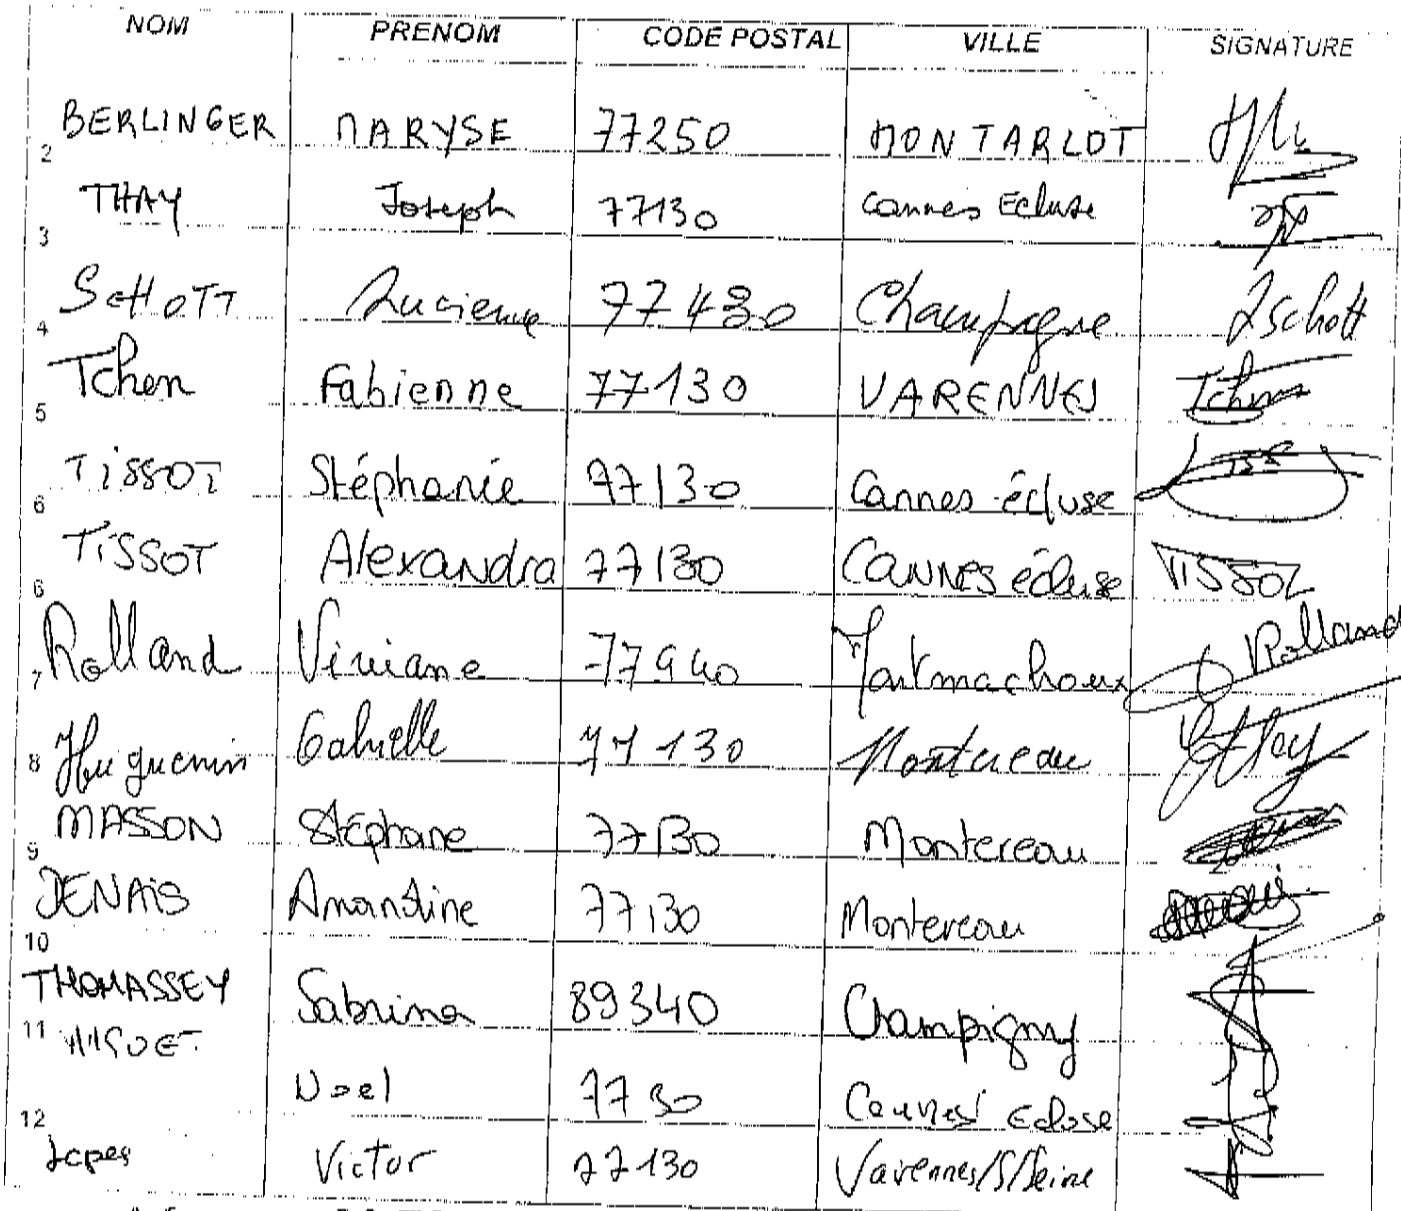 NOM PRENOM CODE POSTAL VILLE SIGNATURE
BERLINGER MARYSE 77250 MONTARLOT
2
THAY Joseph 77130 Cannes Ecluse
3
SCHOTT Lucienne 77430 Champagne LSchott
4
Tchen Fabienne 77130 VARENNES Tchen
5
TISSOT Stéphanie 77130 Cannes-écluse
6
TISSOT Alexandra 77130 CANNES écluse TISSOT
6
Rolland Viviane 77940 Montmachoux Rolland
7
Huguenin Gabrielle 77130 Montereau
8
MASSON Stéphane 77130 Montereau
9
DENAIS Amandine 77130 Montereau
10
THOMASSEY Sabrina 89340 Champigny
11
Noel 7730 Cannes Ecluse
12
Lopes Victor 77130 Varennes/S/Seine